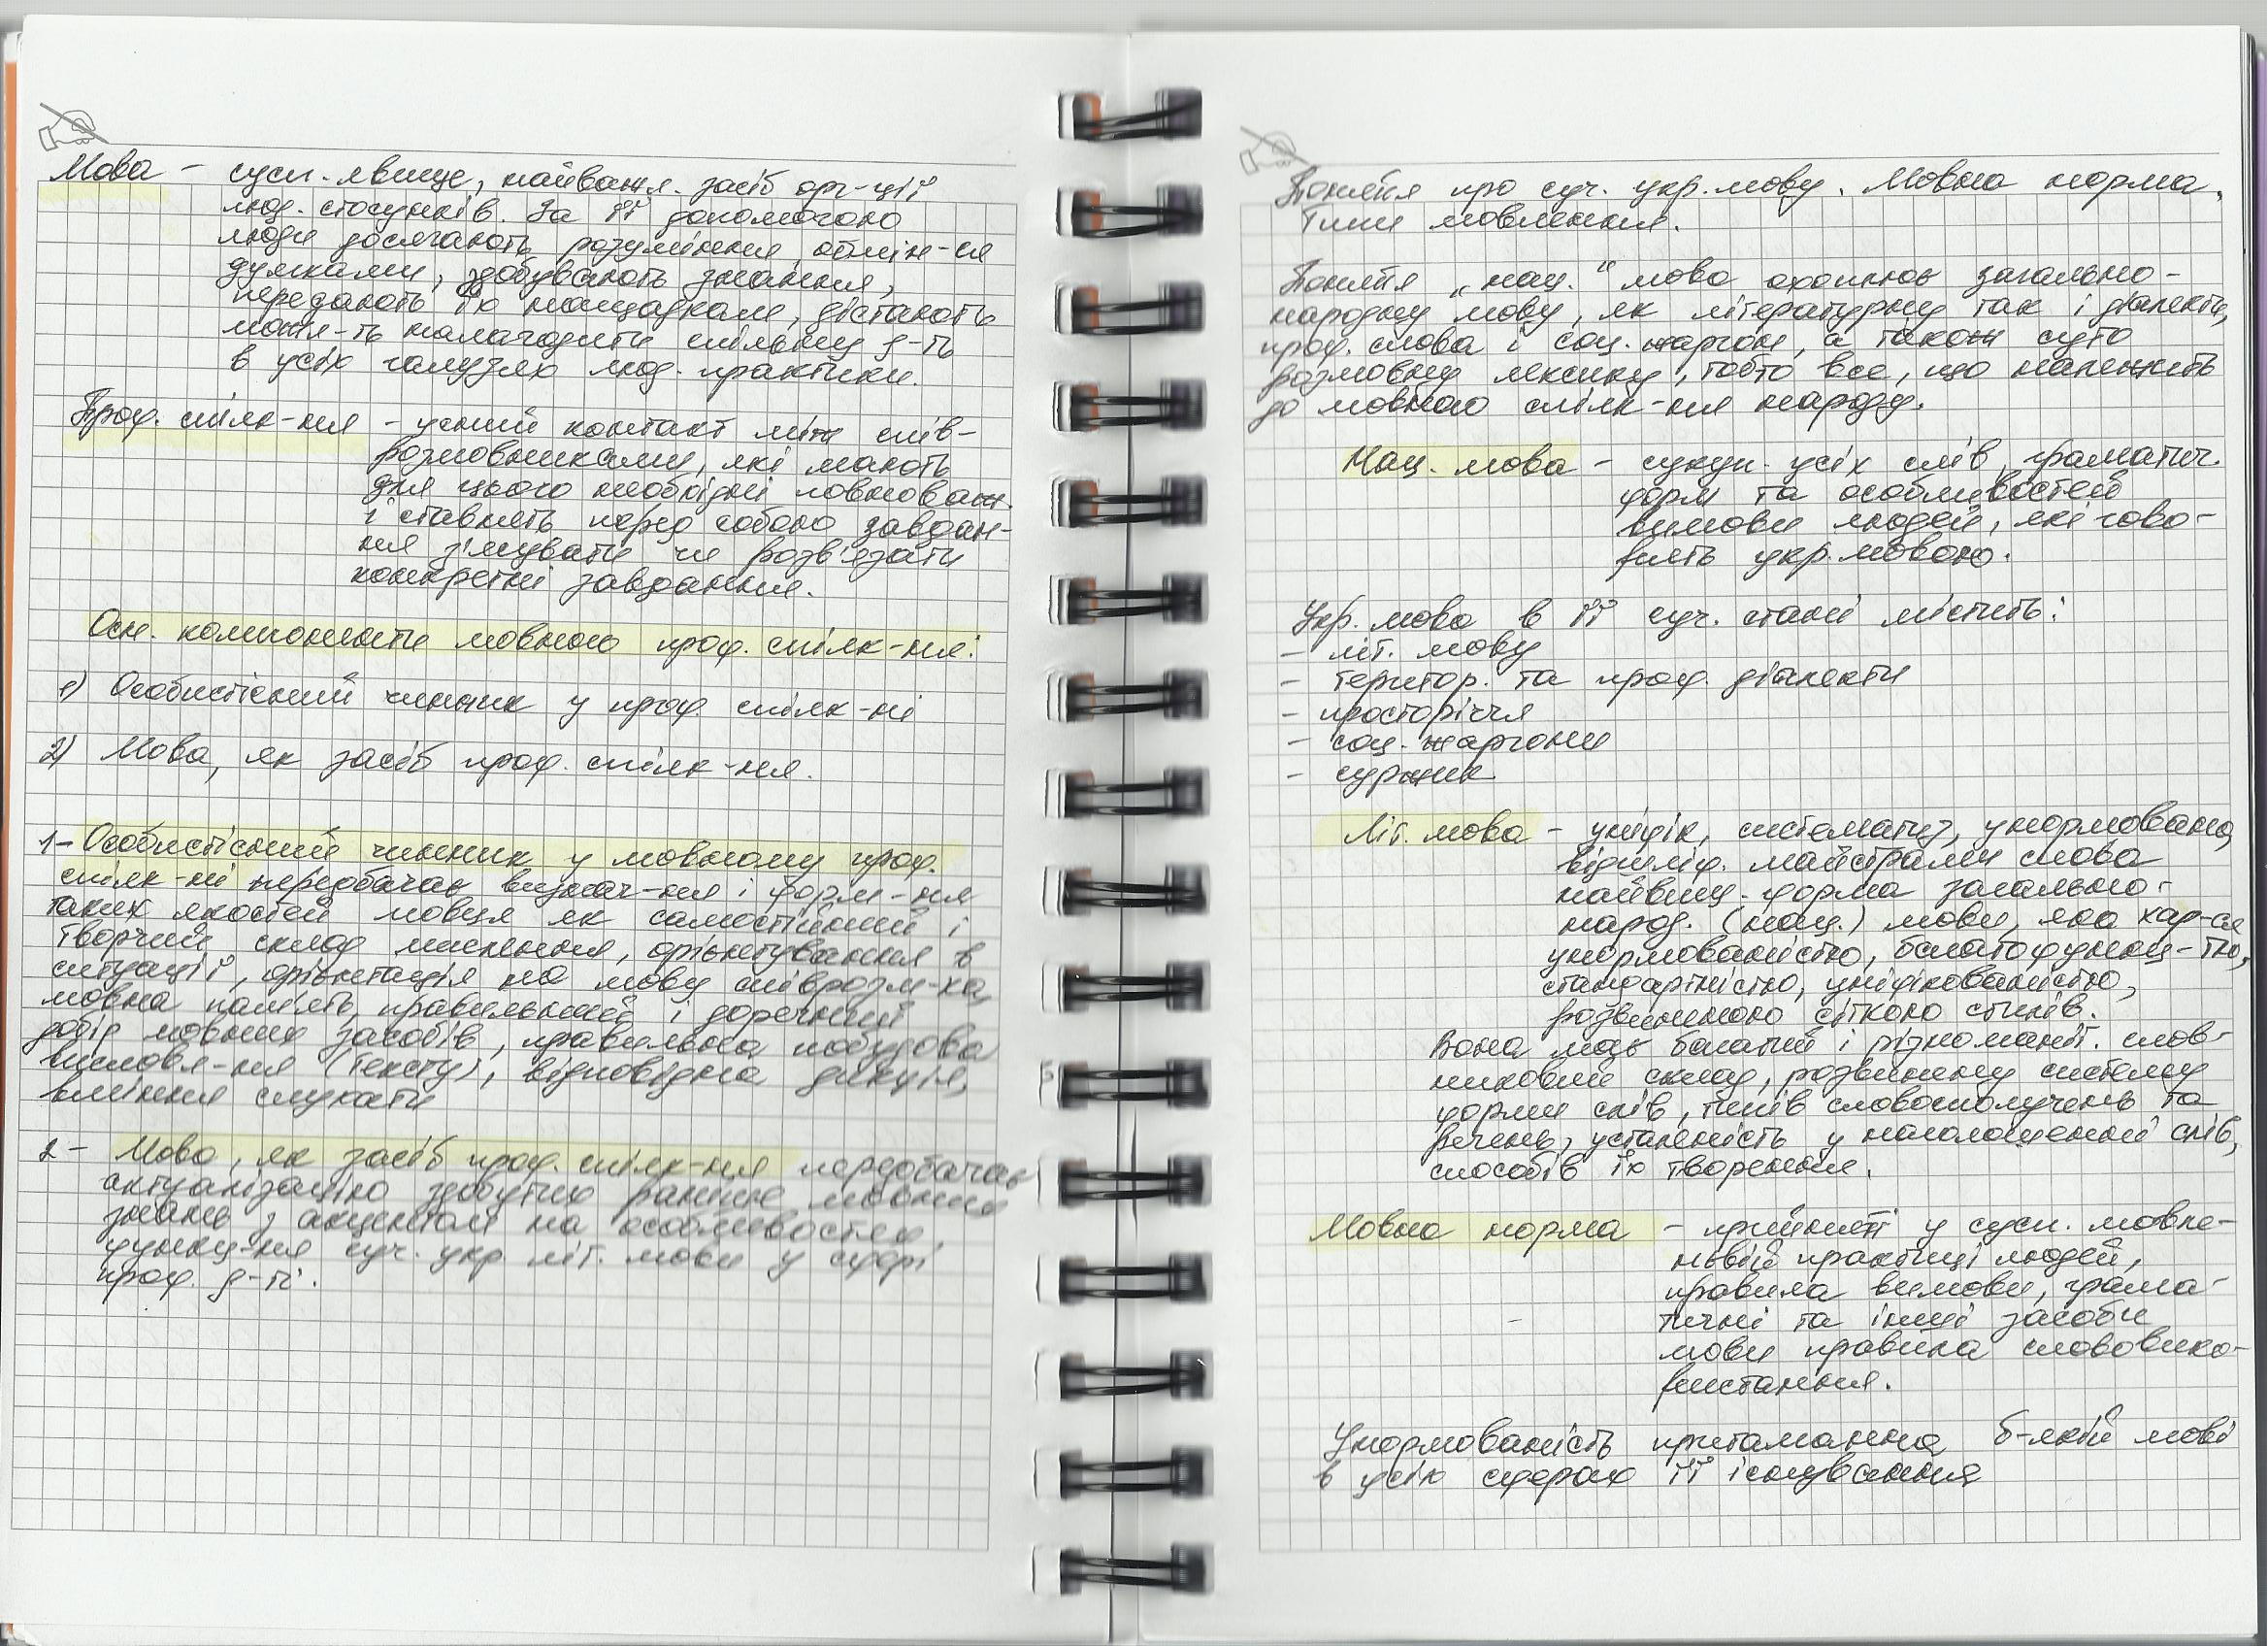 Мова - сусп. явище, найважл. засіб орг-ції
люд. стосунків. За її допомогою
люди досягають розуміння, обмін-ся
думками, здобувають знання,
передають їх нащадкам, дістають
можл-ть налагодити спільну д-ть
в усіх галузях люд. практики.
Проф. спілк-ня - усний контакт між спів-
розмовниками, які мають
для цього необхідні повноваж.
і ставлять перед собою завдан-
ня з'ясувати чи розв'язати
конкретні завдання.
Осн. компоненти мовного проф. спілк-ня:
1) Особистісний чинник у проф. спілк-ні
2) Мова, як засіб проф. спілк-ня.
1- Особистісний чинник у мовному проф.
спілк-ні передбачає визнач-ня і форм-ня
таких якостей мовця як самостійний і
творчий склад мислення, орієнтування в
ситуації, орієнтація на мову співрозм-ка,
мовна пам'ять, правильний і доречний
добір мовних засобів, правильна побудова
висловл-ня (тексту), відповідна дикція,
вміння слухати
2- Мова, як засіб проф. спілк-ня передбачає
актуалізацію здобутих раніше мовних
знань з акцентом на особливостях
функц-ня суч. укр. літ. мови у сфері
проф. д-ті.
Поняття про суч. укр. мову. Мовна норма.
Типи мовлення.
Поняття „нац." мова охоплює загально-
народну мову, як літературну так і діалекти,
проф. слова і соц. жаргон, а також суто
розмовну лексику, тобто все, що належить
до мовного спілк-ня народу.
Нац. мова - сукуп. усіх слів, граматич.
форм та особливостей
вимови людей, які гово-
рять укр. мовою.
Укр. мова в її суч. стані містить:
- літ. мову
- територ. та проф. діалекти
- просторіччя
- соц. жаргони
- суржик
Літ. мова - уніфік, систематиз, унормована,
відшліф. майстрами слова
найвищ. форма загально-
народ. (нац.) мови, яка хар-ся
унормованістю, багатофункц-тю,
стандартністю, уніфікованістю,
розвиненою сіткою стилів.
Вона має багатий і різноманіт. слов-
никовий склад, розвинену систему
форми слів, типів словосполучень та
речень, усталеність у наголошенні слів,
способів їх творення.
Мовна норма - прийняті у сусп. мовле-
нєвій практиці людей,
правила вимови, грама-
тичні та інші засоби
мови правила слововико-
ристання.
Унормованість притаманна б-якій мові
в усіх сферах її існування